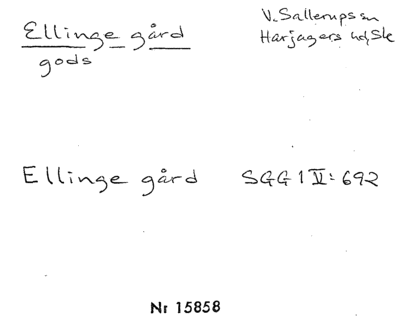 Ellinge gård
gods
V. Sallerups sn
Harjagers hd, Sk
Ellinge gård SGG 1 V: 692
Nr 15858